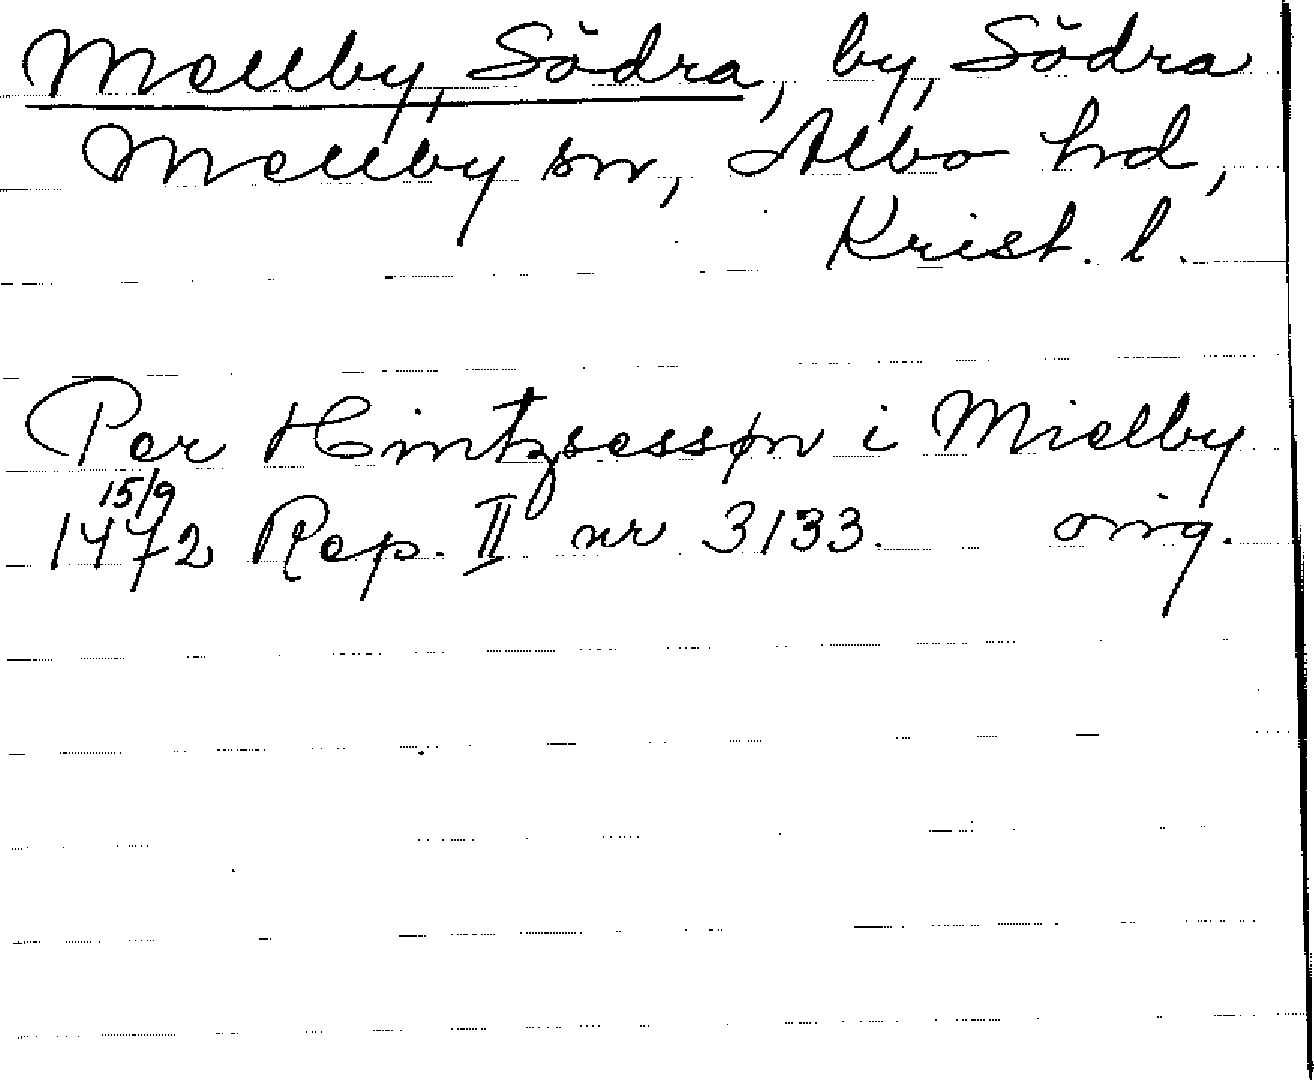 Mellby, Södra, by, Södra
Mellby sn, Albo hd,
Krist. l.
Per Hintzsessøn i Mielby
15/9
1472 Rep. II nr 3133. orig.